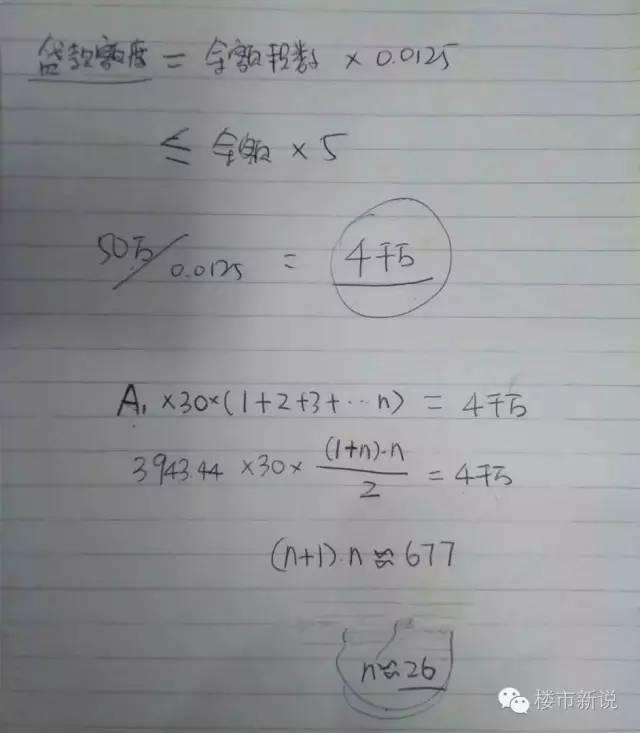 贷款额度 = 余额积数 × 0.0125
≤ 余额 × 5
50万/0.0125 = 4千万
A₁ ×30×(1+2+3+…n) = 4千万
3943.44 ×30× (1+n)·n/2 = 4千万
(n+1)·n ≈ 677
n≈26
楼市新说